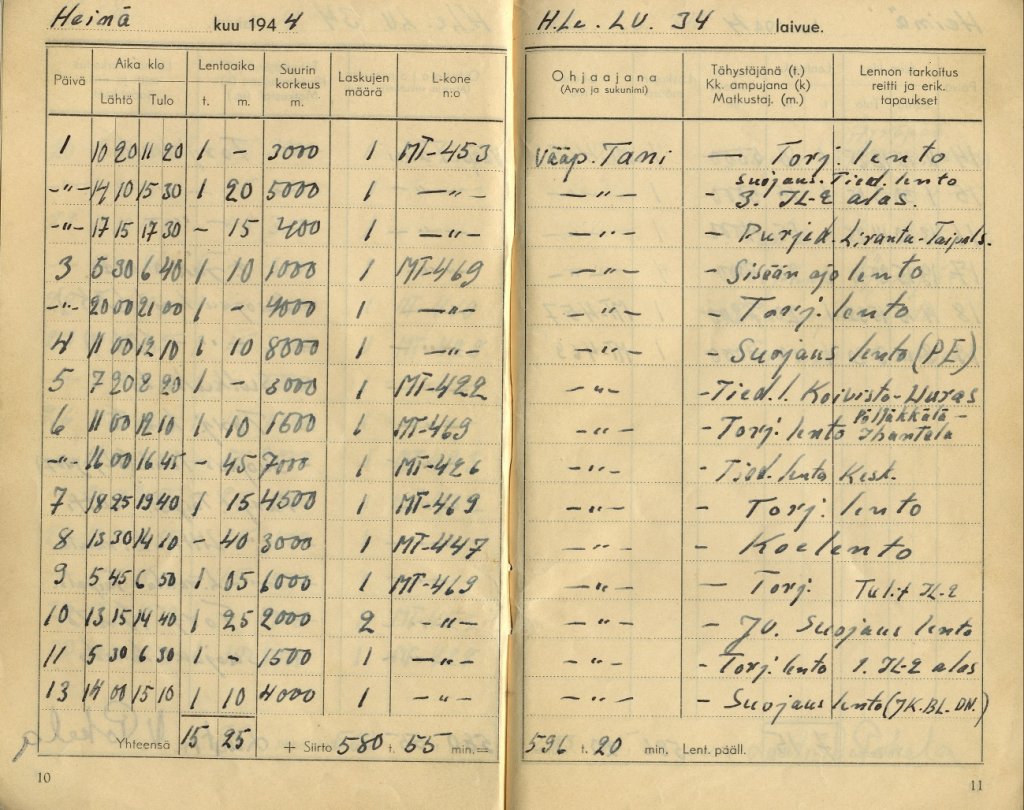 Heinä kuu 1944 H.Le.LV. 34 laivue.
Päivä Aika klo Lähtö Tulo Lentoaika t. m. Suurin korkeus m. Laskujen määrä L-kone n:o Ohjaajana (Arvo ja sukunimi) Tähystäjänä (t.) Kk. ampujana (k) Matkustaj. (m.) Lennon tarkoitus reitti ja erik. tapaukset
1 10 20 11 20 1 - 3000 1 MT-453 Vääp. Tani — Torj. lento
-"- 14 10 15 30 1 20 5000 1 -"- -"- - Suojaus-Tied. lento 3. IL-2 alas.
-"- 17 15 17 30 - 15 400 1 -"- -"- - Purjed. Liranta-Taipals.
3 5 30 6 40 1 10 1000 1 MT-469 -"- - Sisään ajo lento
-"- 20 00 21 00 1 - 4000 1 -"- -"- - Torj. lento
4 11 00 12 10 1 10 8000 1 -"- -"- - Suojaus lento (PE)
5 7 20 8 20 1 - 3000 1 MT-422 -"- - Tied. l. Koivisto-Uuras
6 11 00 12 10 1 10 1500 1 MT-469 -"- - Torj. lento Pölläkkälä - Ihantala
-"- 16 00 16 45 - 45 7000 1 MT-426 -"- - Tied. lento Kesk.
7 18 25 19 40 1 15 4500 1 MT-469 -"- - Torj. lento
8 13 30 14 10 - 40 3000 1 MT-447 -"- - Koelento
9 5 45 6 50 1 05 6000 1 MT-469 -"- — Torj. Tul:t IL-2
10 13 15 14 40 1 25 2000 2 -"- -"- - JU. Suojaus lento
11 5 30 6 30 1 - 1500 1 -"- -"- - Torj. lento 1. IL-2 alas
13 14 00 15 10 1 10 4000 1 -"- -"- - Suojaus lento (JK. BL. DN.)
Yhteensä 15 25 + Siirto 580 t. 55 min.= 596 t. 20 min. Lent. pääll.
10 11